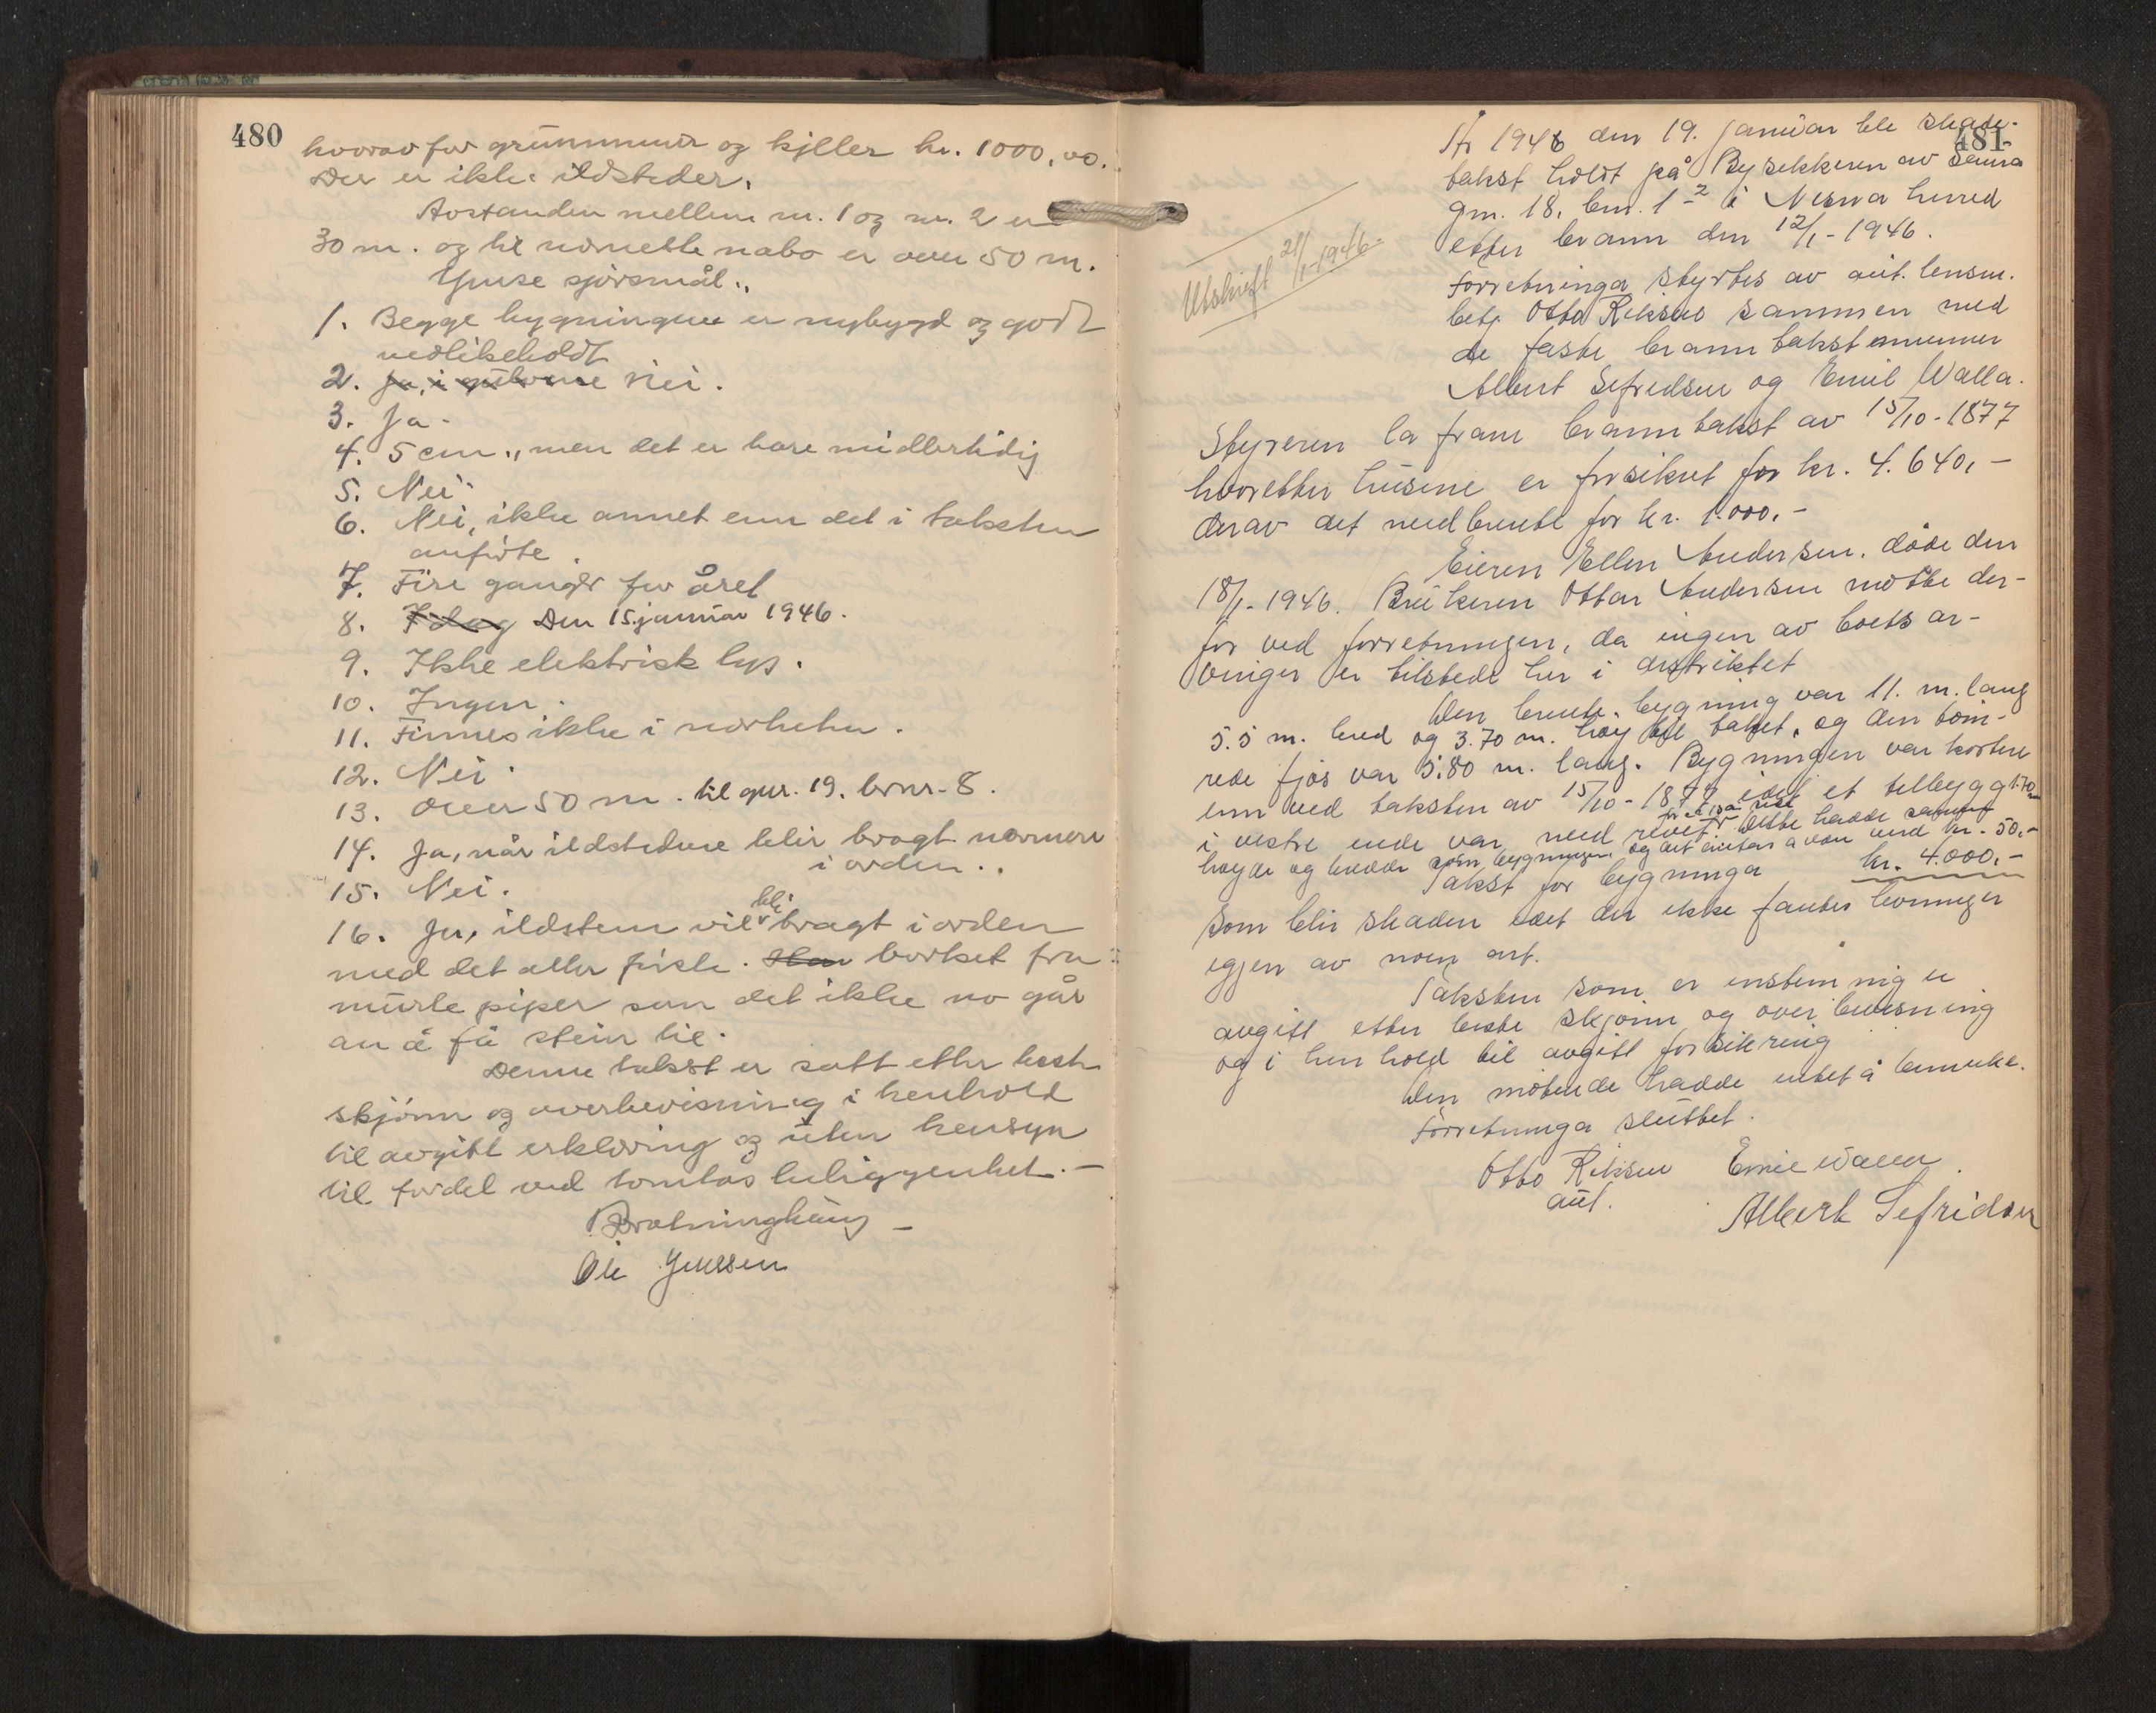 480
hvorav for grunnmur og kjeller kr. 1000,00.
Der er ikke ildsteder.
Avstanden mellem nr. 1 og nr. 2 er
30 m. og til nærmeste nabo er over 50 m.
Ymse spörsmål..
1. Begge bygninguu er nybygd og godt
vedlikeholdt
2. Ja, i Nei.
3. Ja.
4. 5 cm., men det er bare midlertidig
5. Nei
6. Nei, ikke annet enn det i taksten
anförte.
7. Fire ganger for året
8. I dag Den 15. januar 1946.
9. Ikke elektrisk lys.
10. Ingen.
11. Finnes ikke i nærheten.
12. Nei.
13. Over 50 m. til gnr. 19. brnr. 8.
14. Ja, når ildstedene blir bragt nærmere
i orden..
15. Nei.
16. Ja, ildstem vil bli bragt i orden
med det aller förste. Han bortset fra
murte piper som det ikke no går
an å få stein til.
Denne takst er satt etter beste
skjönn og overbevisning i henhold
til avgitt erklæring og uten hensyn
til fordel ved tomtas beliggenhet. -
Ole Jenssen
481
År 1946 den 19. januar ble skade-
takst holdt på Bysekkeren av Saura
gnr. 18, bnr. 1-2 i Nesna herred
etter brann den 12/1-1946.
Utskrift 21/1-1946.
Forretninga styrtes av aut. lensm.
betj. Otto Reksen sammen med
de faste branntakstmenner
Albert Sefredsen og Emil Walla.
Styreren la fram branntakst av 15/10-1877
hvoretter husene er forsikret for kr. 4.640,-
derav det nedbrente for kr. 1.000.-
Eieren Ellen Andersen. döde den
18/1-1946. Brukeren Ottar Andersen mötte der-
for ved forretningen, da ingen av boets ar-
vinger er tilstede her i distriktet
Den brente bygning var 11. m. lang
5.5 m. bred og 3.70 m. höy til taket, og den töm-
rede fjös var 5.80 m. lang. Bygningen var kortere
enn ved taksten av 15/10-1877 idet et tilbygg 1.70 m
i vestre ende var ned revet for et par år siden. Dette hadde samme
höyde og bredde som bygningen og det antas å være verd kr. 50.-
Takst for bygninga kr. 4.000.-
som blir skaden idet der ikke fantes levninger
igjen av noen art.
Taksten som er enstemmig er
avgitt etter beste skjönn og overbevisning
og i henhold til avgitt forsikring
Den mötende hadde intet å bemerke.
Forretninga sluttet.
Otto Reksen Emil Walla.
aut.
Albert Sefridsen